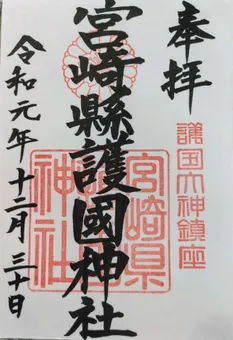 奉拝
護国大神鎮座
宮崎縣護國神社
宮崎県
神社
令和元年十二月三十日